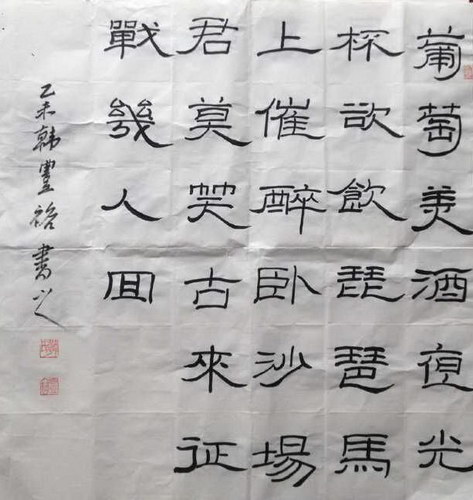 葡萄美酒夜光
杯欲飲琵琶馬
上催醉卧沙場
君莫笑古來征
戰幾人回
乙未韩豐裕書